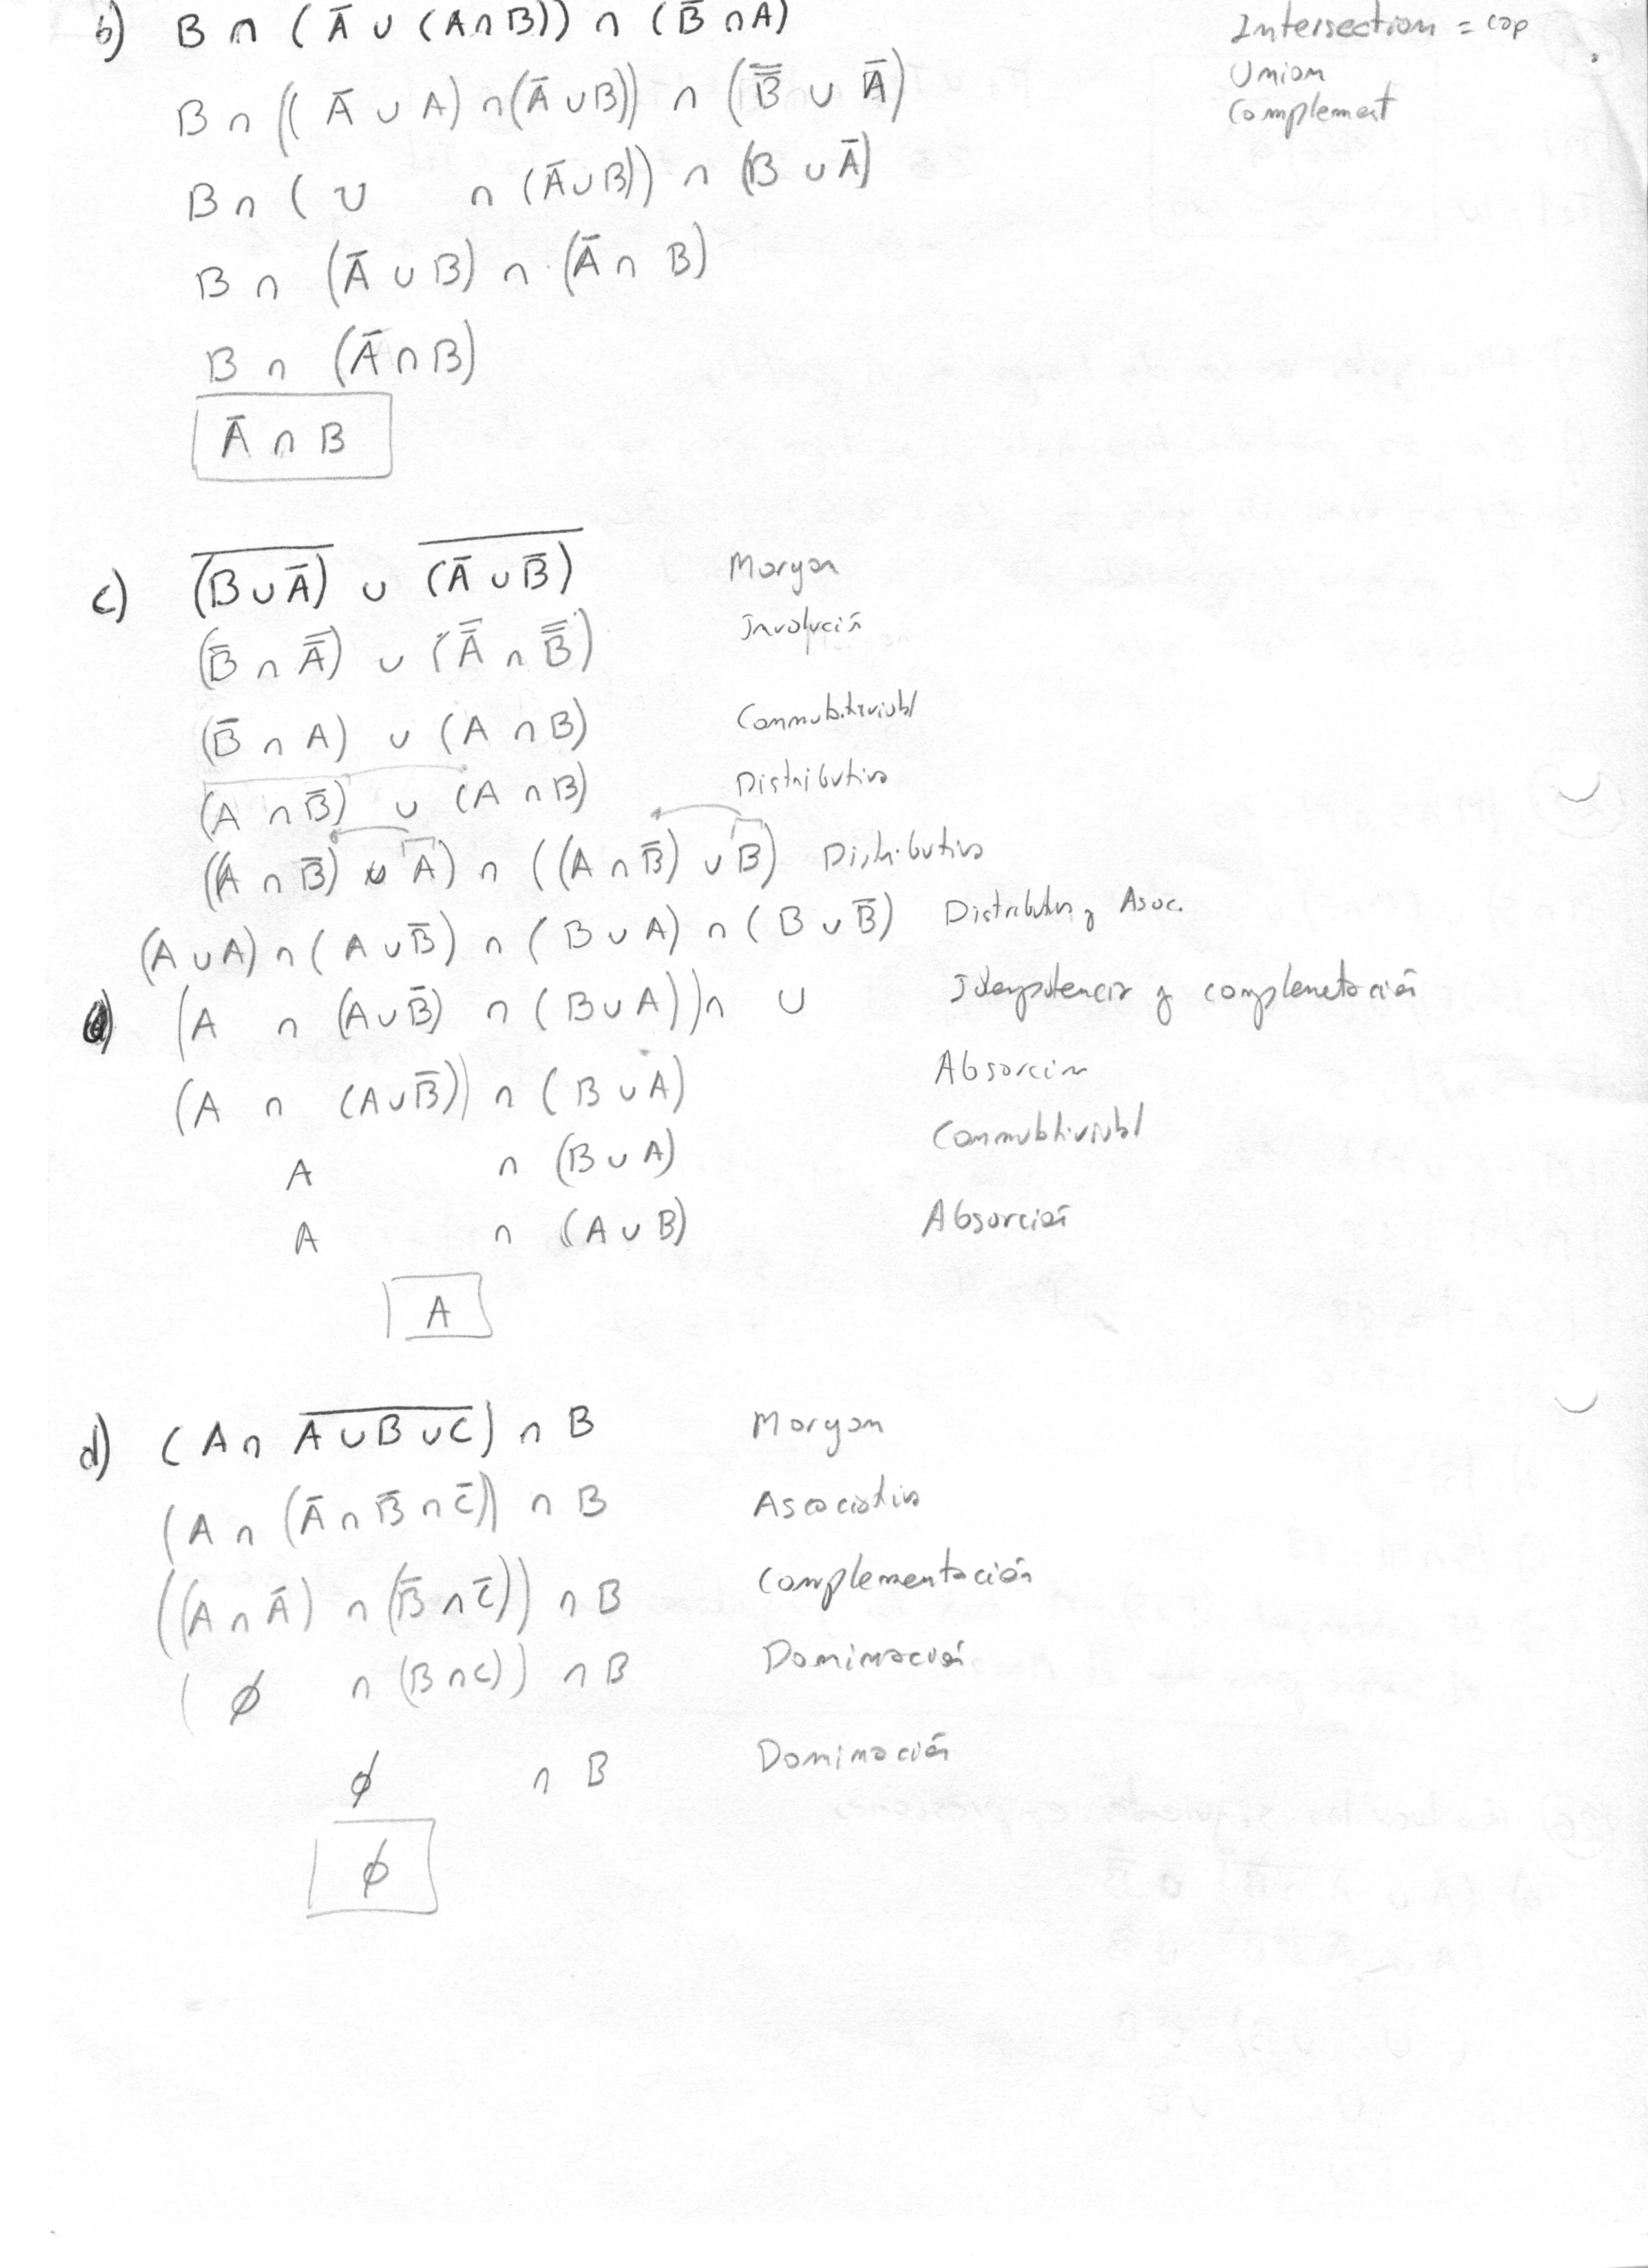 b) B ∩ (Ā ∪ (A∩B)) ∩ (B̄ ∩ A)
Intersection = cap
B ∩ ((Ā ∪ A) ∩ (Ā ∪ B)) ∩ (B̿ ∪ Ā)
Union
Complement
B ∩ ( U ∩ (Ā∪B)) ∩ (B ∪ Ā)
B ∩ (Ā ∪ B) ∩ (Ā ∩ B)
B ∩ (Ā ∩ B)
Ā ∩ B
c) (B∪Ā)̅ ∪ (Ā ∪ B̄)̅ Morgan
(B̄ ∩ A̿) ∪ (A̿ ∩ B̿) Involución
(B̄ ∩ A) ∪ (A ∩ B)
(A ∩ B̄) ∪ (A ∩ B) Distributiva
((A ∩ B̄) ∪ A) ∩ ((A ∩ B̄) ∪ B) Distributiva
(A ∪ A) ∩ (A ∪ B̄) ∩ (B ∪ A) ∩ (B ∪ B̄) Distributiva y Asoc.
(A ∩ (A∪B̄) ∩ (B∪A)) ∩ U Idempotencia y complemetación
(A ∩ (A∪B̄)) ∩ (B ∪ A) Absorción
A ∩ (B ∪ A)
A ∩ (A ∪ B) Absorción
A
d) (A ∩ A̅ ̅∪̅ ̅B̅ ̅∪̅ ̅C̅) ∩ B Morgan
(A ∩ (Ā ∩ B̄ ∩ C̄)) ∩ B Asociativa
((A ∩ Ā) ∩ (B̄ ∩ C̄)) ∩ B Complementación
( ∅ ∩ (B ∩ C)) ∩ B Dominación
∅ ∩ B Dominación
∅